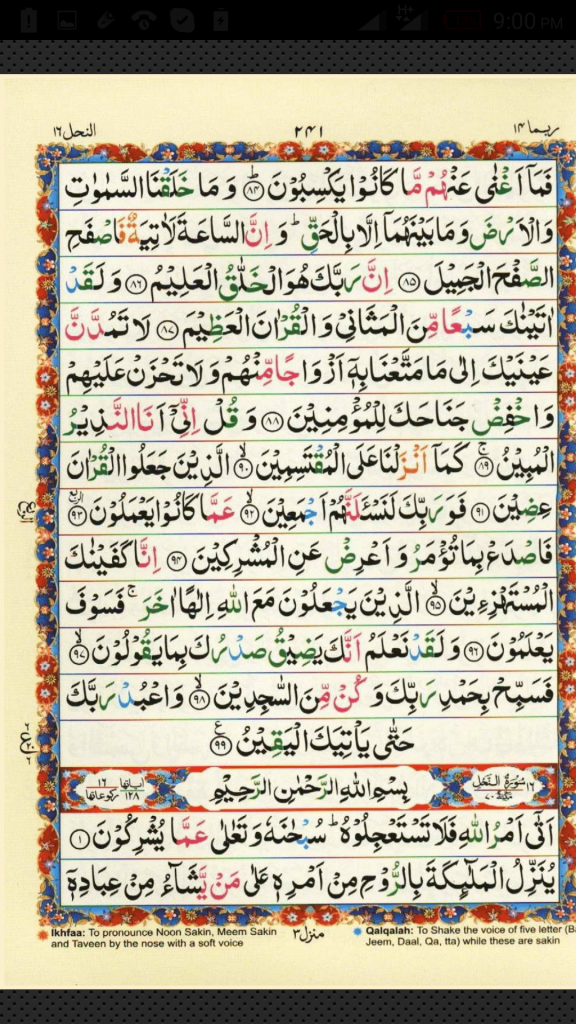 9:00 PM
النحل ١٦
٢٤١
ربما ١٤
فَمَاۤ اَغْنٰی عَنْهُمْ مَّا كَانُوْا یَكْسِبُوْنَ ﴿۸۴﴾ وَ مَا خَلَقْنَا السَّمٰوٰتِ
وَالْاَرْضَ وَمَا بَیْنَهُمَاۤ اِلَّا بِالْحَقِّ ؕ وَ اِنَّ السَّاعَةَ لَاٰتِیَةٌ فَاصْفَحِ
الصَّفْحَ الْجَمِیْلَ ﴿۸۵﴾ اِنَّ رَبَّكَ هُوَ الْخَلّٰقُ الْعَلِیْمُ ﴿۸۶﴾ وَ لَقَدْ
اٰتَیْنٰكَ سَبْعًا مِّنَ الْمَثَانِیْ وَ الْقُرْاٰنَ الْعَظِیْمَ ﴿۸۷﴾ لَا تَمُدَّنَّ
عَیْنَیْكَ اِلٰی مَا مَتَّعْنَا بِهٖۤ اَزْوَاجًا مِّنْهُمْ وَ لَا تَحْزَنْ عَلَیْهِمْ
وَ اخْفِضْ جَنَاحَكَ لِلْمُؤْمِنِیْنَ ﴿۸۸﴾ وَ قُلْ اِنِّیْۤ اَنَا النَّذِیْرُ
الْمُبِیْنُ ﴿۸۹﴾ۚ كَمَاۤ اَنْزَلْنَا عَلَی الْمُقْتَسِمِیْنَ ﴿۹۰﴾ۙ الَّذِیْنَ جَعَلُوا الْقُرْاٰنَ
عِضِیْنَ ﴿۹۱﴾ فَوَرَبِّكَ لَنَسْـَٔلَنَّهُمْ اَجْمَعِیْنَ ﴿۹۲﴾ۙ عَمَّا كَانُوْا یَعْمَلُوْنَ ﴿۹۳﴾
فَاصْدَعْ بِمَا تُؤْمَرُ وَ اَعْرِضْ عَنِ الْمُشْرِكِیْنَ ﴿۹۴﴾ اِنَّا كَفَیْنٰكَ
الْمُسْتَهْزِءِیْنَ ﴿۹۵﴾ۙ الَّذِیْنَ یَجْعَلُوْنَ مَعَ اللّٰهِ اِلٰهًا اٰخَرَ ۚ فَسَوْفَ
یَعْلَمُوْنَ ﴿۹۶﴾ وَ لَقَدْ نَعْلَمُ اَنَّكَ یَضِیْقُ صَدْرُكَ بِمَا یَقُوْلُوْنَ ﴿۹۷﴾ۙ
فَسَبِّحْ بِحَمْدِ رَبِّكَ وَ كُنْ مِّنَ السّٰجِدِیْنَ ﴿۹۸﴾ۙ وَ اعْبُدْ رَبَّكَ
حَتّٰی یَاْتِیَكَ الْیَقِیْنُ ﴿۹۹﴾
١٦ سُوْرَةُ النَّحْلِ مكية ٧٠ بِسْمِ اللّٰهِ الرَّحْمٰنِ الرَّحِیْمِ اٰیاتها ١٢٨ ركوعاتها ١٦
اَتٰۤی اَمْرُ اللّٰهِ فَلَا تَسْتَعْجِلُوْهُ ؕ سُبْحٰنَهٗ وَ تَعٰلٰی عَمَّا یُشْرِكُوْنَ ﴿۱﴾
یُنَزِّلُ الْمَلٰٓىِٕكَةَ بِالرُّوْحِ مِنْ اَمْرِهٖ عَلٰی مَنْ یَّشَآءُ مِنْ عِبَادِهٖۤ
منزل ٣
Ikhfaa: To pronounce Noon Sakin, Meem Sakin
and Taveen by the nose with a soft voice
Qalqalah: To Shake the voice of five letter (B
Jeem, Daal, Qa, tta) while these are sakin